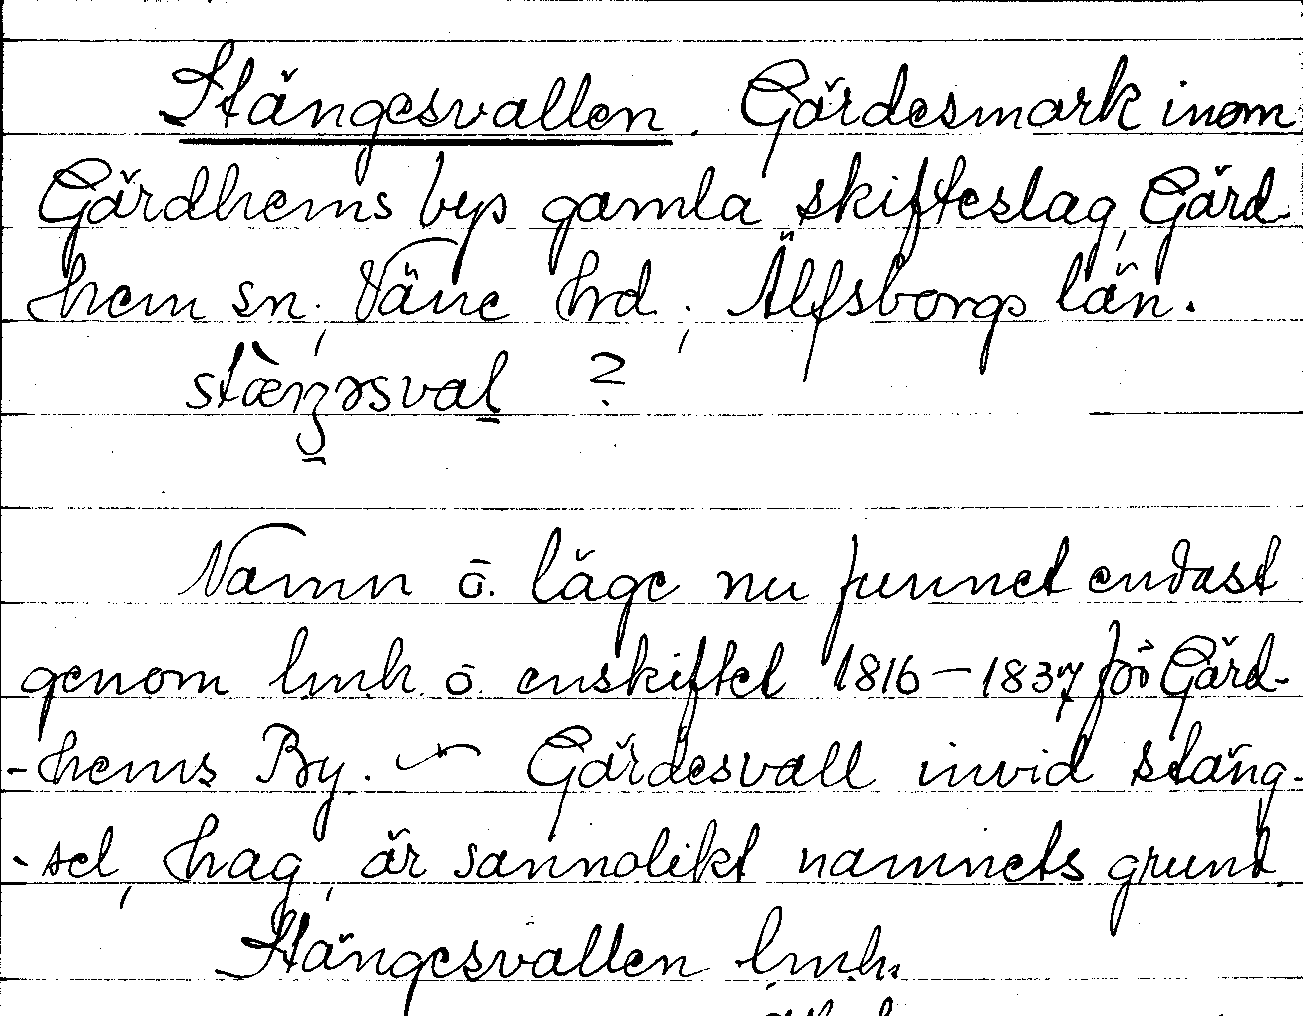 Stängesvallen. Gärdesmark inom
Gärdhems bys gamla skifteslag, Gärd
hem sn, Väne hrd, Älfsborgs län.
stæŋəsval ?
Namn o. läge nu funnet endast
genom lmh o. enskiftet 1816–1837 för Gärd-
-hems By. – Gärdesvall invid stäng-
-sel, hag, är sannolikt namnets grund.
Stängesvallen lmh.